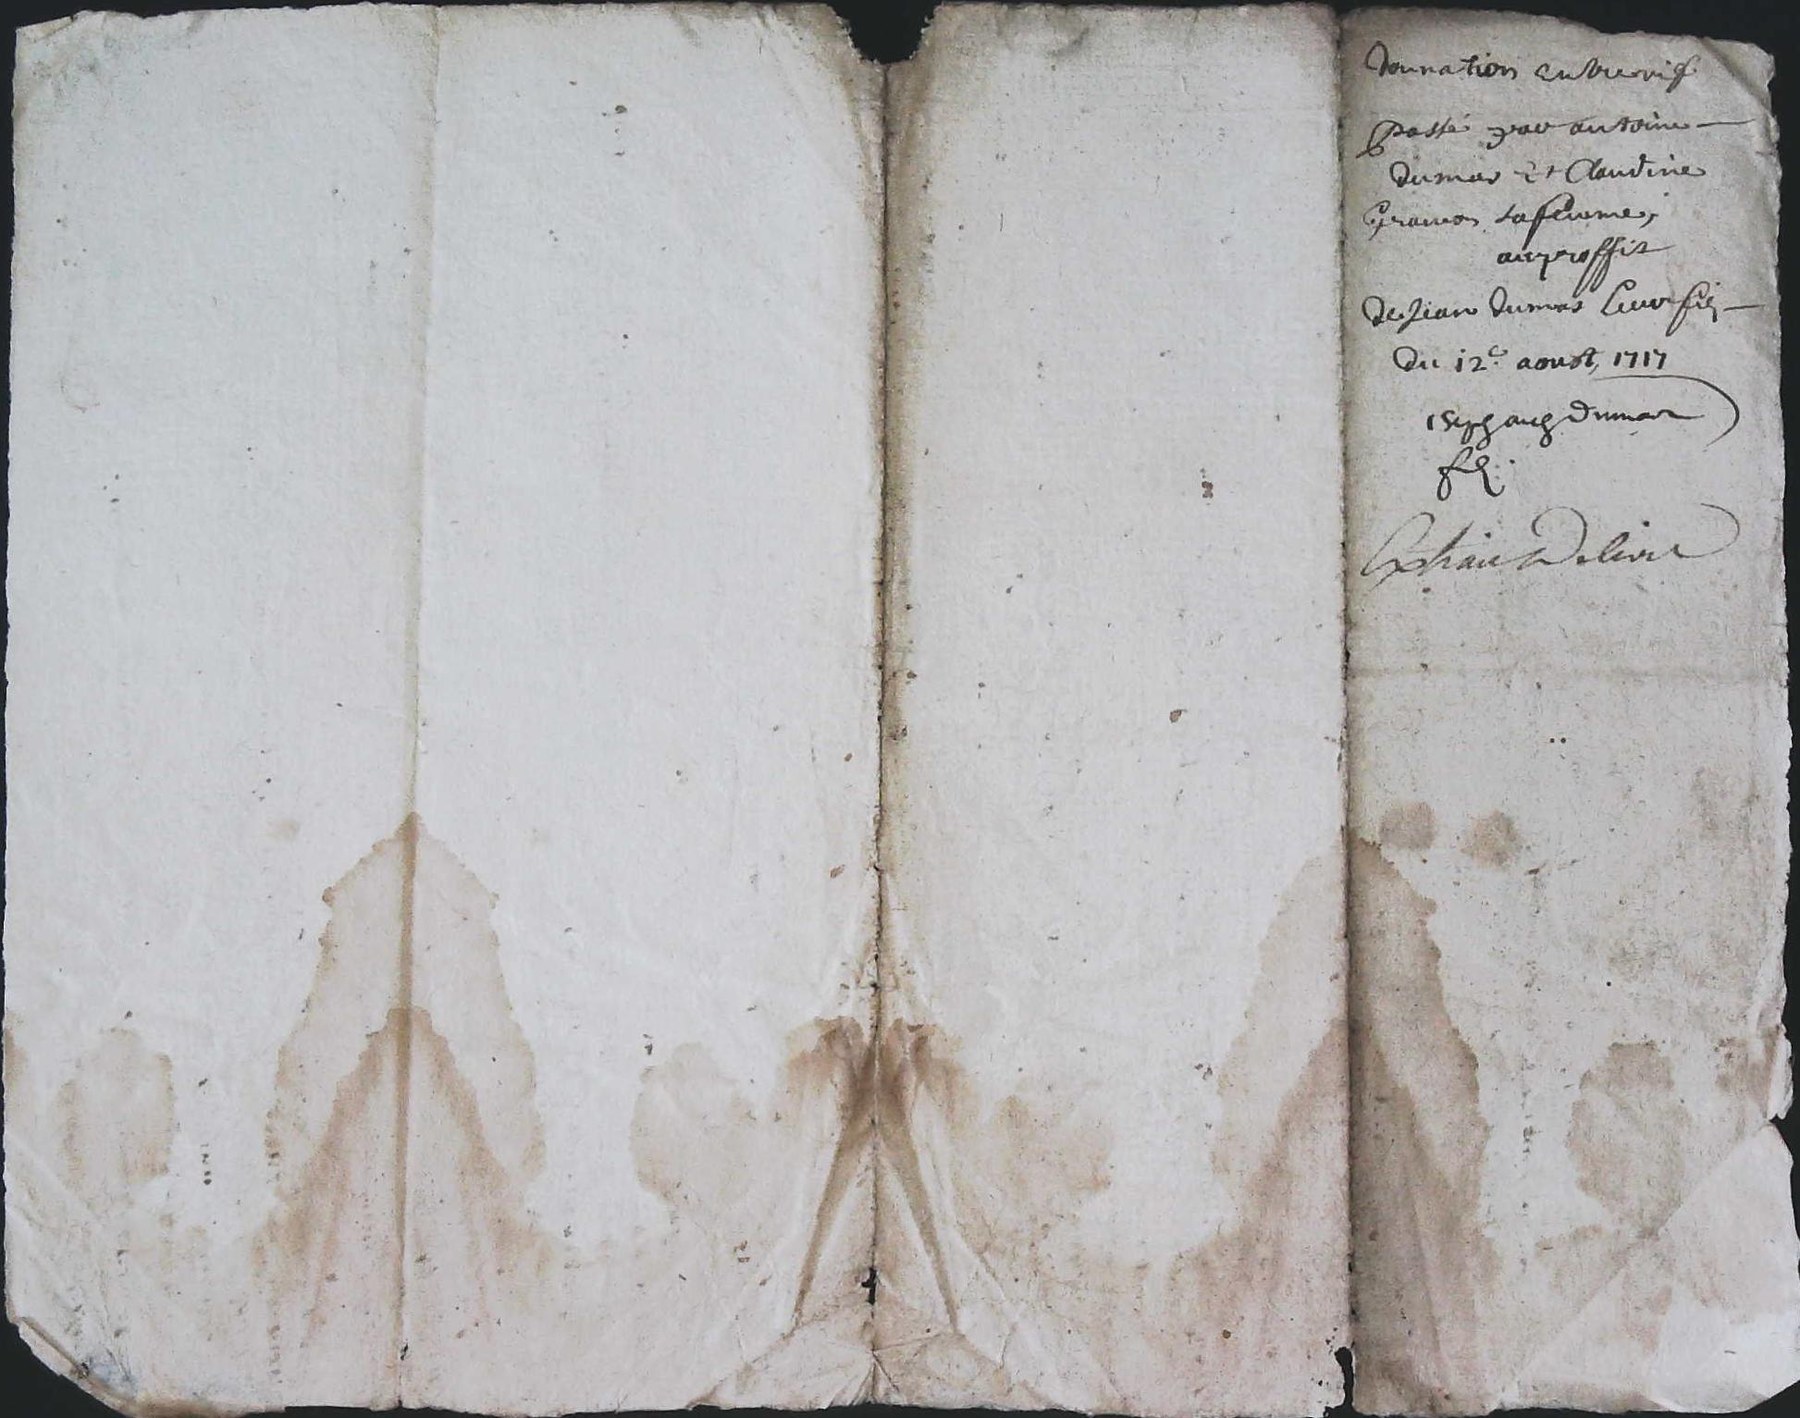 donnation entre vifs
passé par antoine
dumas et Claudine
Granon sa femme,
au proffit
de Jean dumas leur fils
du 12e aoust, 1717
dumas